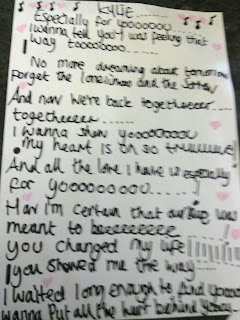 KYLIE.........
Especially for yoooooooo
I wanna tell you I was feeling that
way tooooooooo....
No more dreaming about tomorrow
Forget the loneliness and the sorrow
And now we're back togetheeeeer
togetheeeeer ......
I wanna show yooooooooo
my heart is oh so truuuuuue!
And all the love I have is especially
for yoooooooo.....
Now I'm certain that our love was
meant to beeeeeeeee
you changed my life
you showed me the way
I waited long enough to find
wanna put all the hurt behind